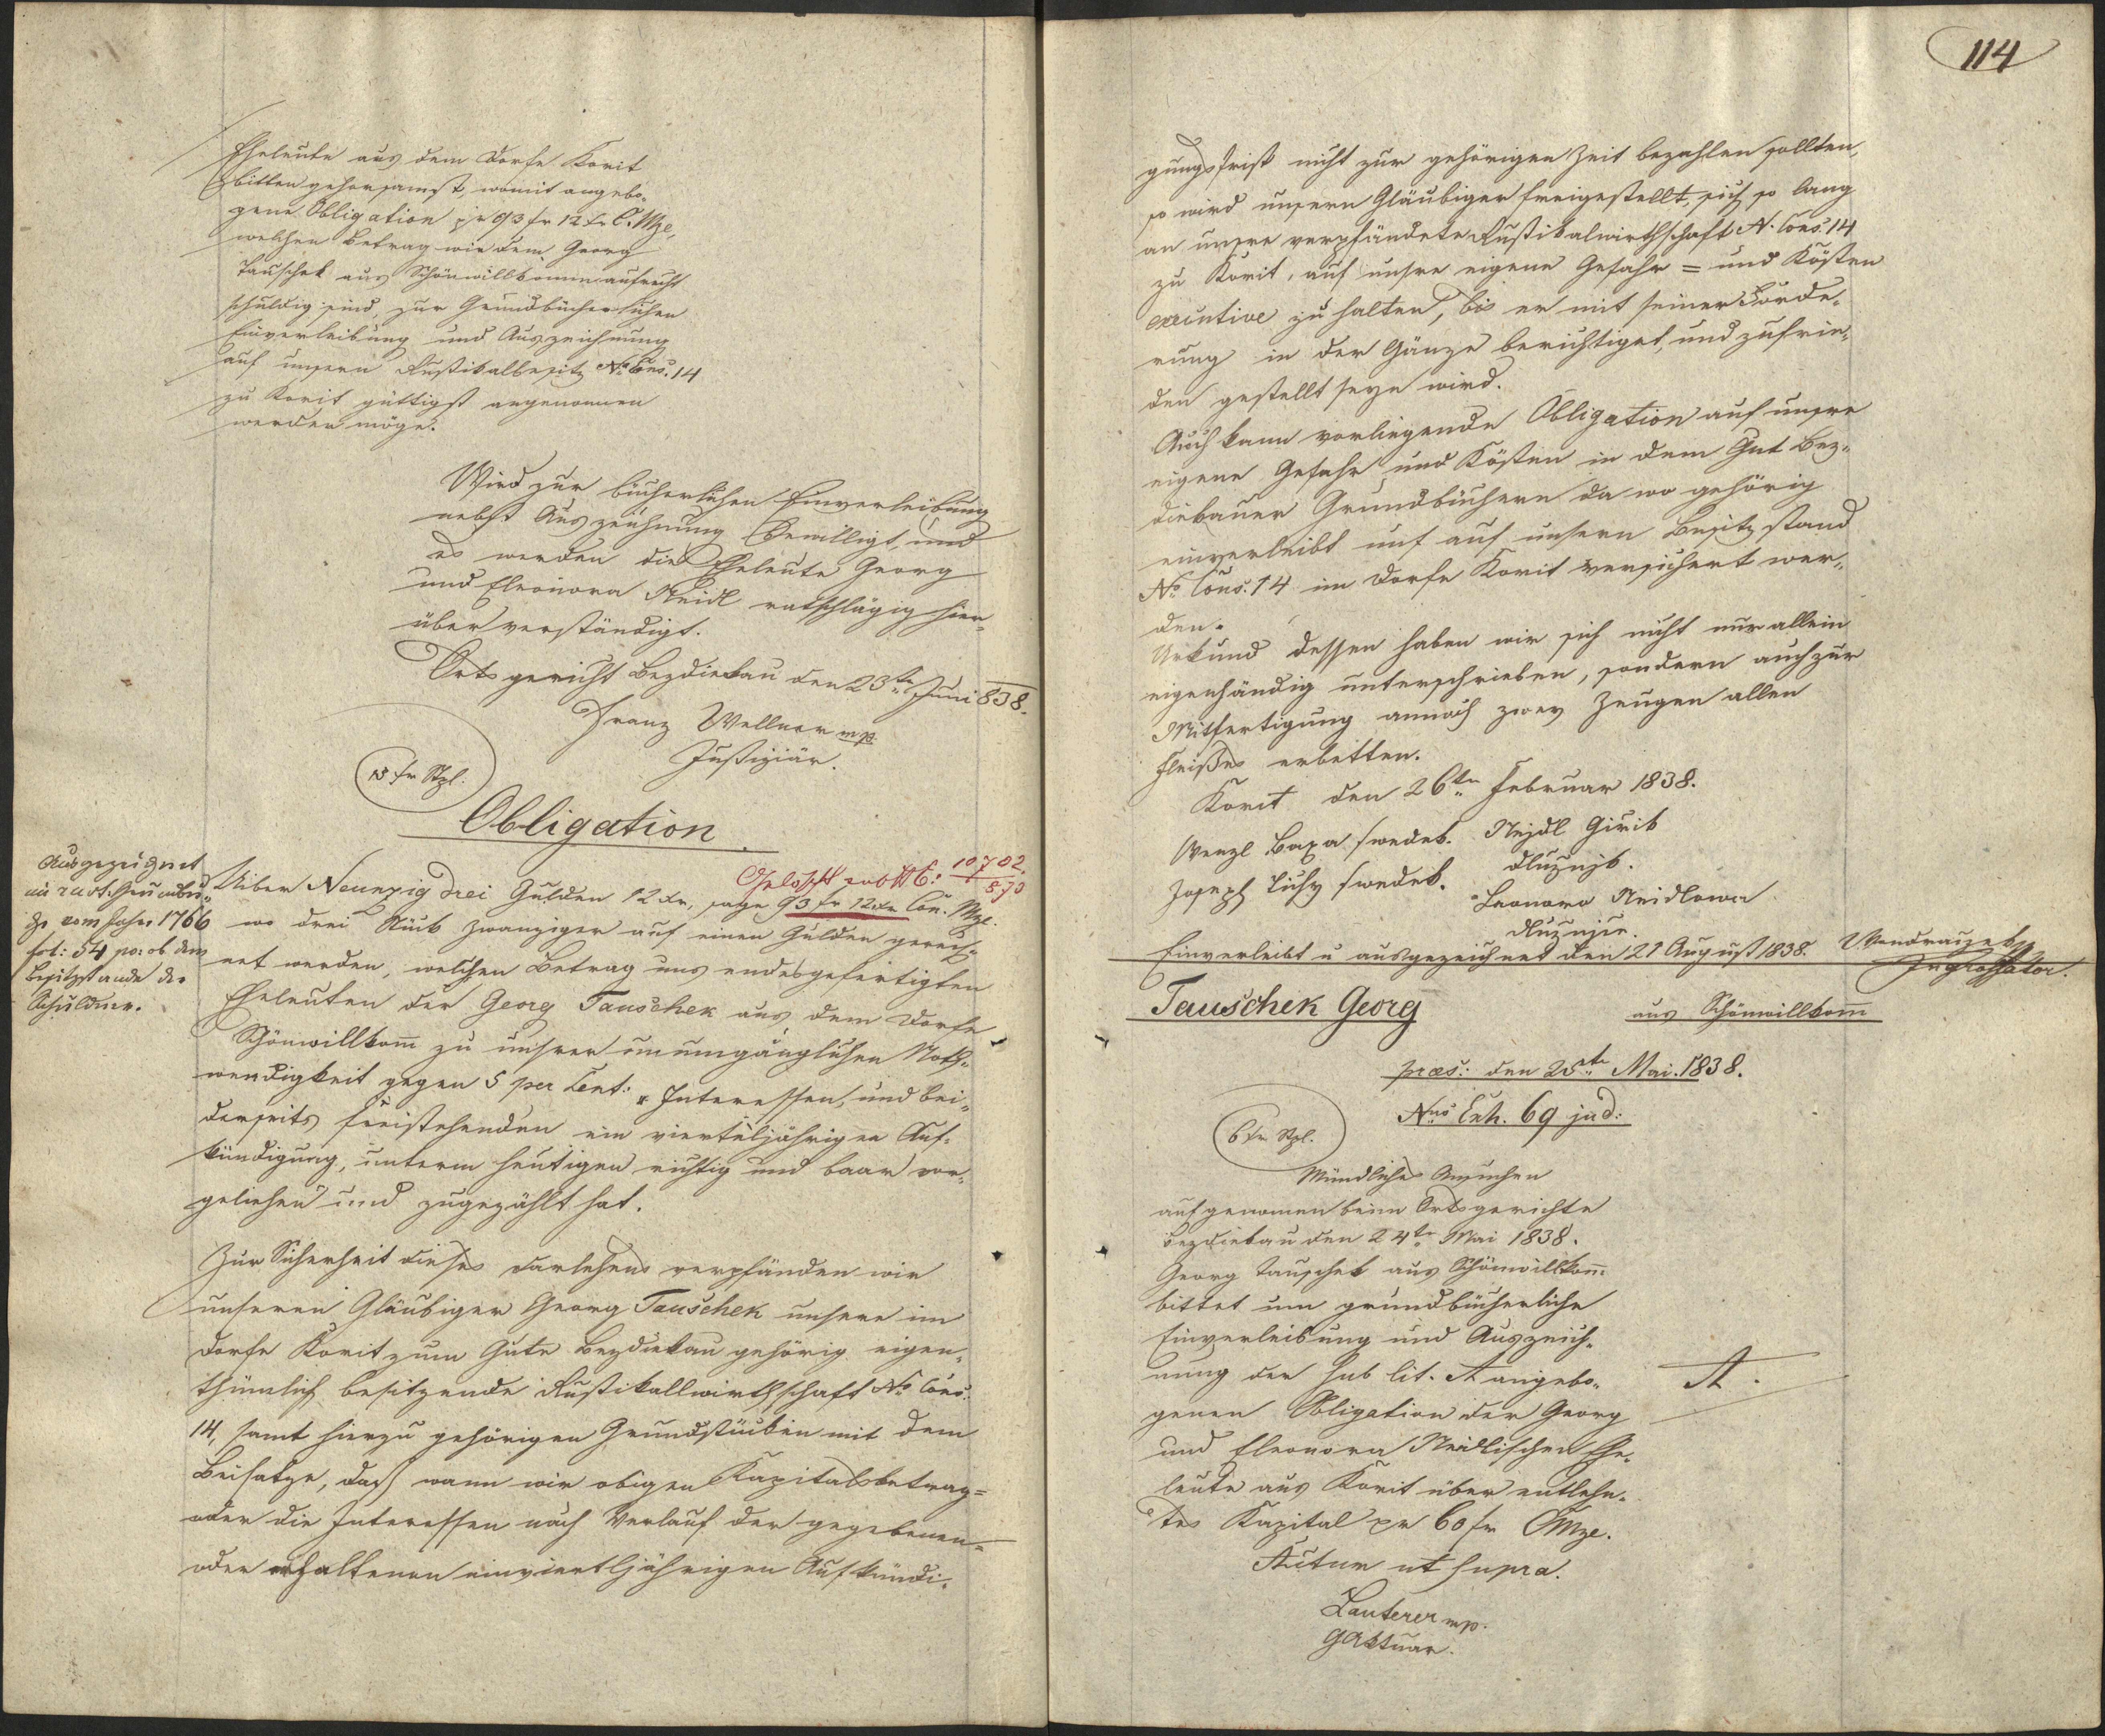 Eheleute aus dem Dorfe Korit
bitten gehorsamst, womit angebo-
gene Obligation pr 93 fr 12 xr C. Mze,
welchen Betrag wir dem Georg
Tauschek aus Schönwillkomm aufrecht
schuldig sind, zur Grundbücherlichen
Einverleibung und Auszeichnung
auf unsern Rustikalbesitz No Cons. 14
zu Korit güttigst angenommen
werden möge.
Wird zur bücherlichen Einverleibung
nebst Auszeichnung bewilligt, und
es werden die Eheleute Georg
und Eleonora Neidl rathschlägig hier-
über verständigt.
Ortsgericht Bezdiekau den 23ten Juni 838.
Franz Wellner mp
Justiziär.
15 fr Stpl.
Obligation
Ausgezeignet
im rust. Grundbu-
che vom Jahre 1766
fol: 54 po: ob dem
Besitzstande der
Schuldner.
Gelöscht 10702
570
Uiber Neunzig drei Gulden 12 xr, sage 93 fr 12 xr Con. Mze.
wo drei Stück Zwanziger auf einen Gulden gerech-
net werden, welchen Betrag uns endesgefertigten
Eheleuten der Georg Tauschek aus dem Dorfe
Schönwillkomm zu unsrer unumgänglichen Noth-
wendigkeit gegen 5 per Cent: Interessen, und bei-
derseits freistehenden ein vierteljährigen Auf-
kündigung, unterm heutigen richtig und baar vor-
geliehen und zugezählt hat.
Zur Sicherheit dieses Darlehens verpfänden wir
unseren Gläubiger Georg Tauschek unsere im
Dorfe Korit zum Gute Bezdiekau gehörig eigen-
thümlich besitzende Rustikallwirthschaft No Cons.
14, samt hierzu gehörigen Grundstücken mit dem
Beisatze, daß wann wir obigen Kapitalsbetrag =
oder die Interessen nach Verlauf der gegebenen =
oder erhaltenen einviertljährigen Aufkündi-
114
gungsfrist nicht zur gehörigen Zeit bezahlen sollten,
so wird unsern Gläubiger freigestellt, sich so lang
an unsre verpfändete Rustikalwirthschaft N. Cons. 14
zu Korit, auf unsre eigene Gefahr = und Kösten
executive zu halten, bis er mit seiner Forde-
rung in der Gänze berichtiget, und zufrie-
den gestellt seyn wird.
Auch kann vorliegende Obligation auf unsre
eigene Gefahr und Kösten in dem Gut Bez-
diekauer Grundbüchern da wo gehörig
einverleibt und auf unsern Besitzstand
No Cons. 14 im Dorfe Korit versichert wer-
den.
Urkund dessen haben wir sich nicht nur allein
eigenhändig unterschrieben, sondern auch zur
Mitfertigung annoch zwey Zeugen allen
Fleißes erbetten.
Korit den 26ten Februar 1838.
Wenzl Baxa swedek. Nejdl Girik
dlužnjk.
Joseph Tichy swedek.
Leonora Neidlowa
dlužnjce.
Einverleibt u ausgezeichnet den 21 August 1838.
Wondraczek
Ingrossator.
Tauschek Georg aus Schönwillkomm
præs: den 25ten Mai. 1838.
Nrus Exh. 69 jud:
6 fr Stpl.
Mündliches Ansuchen
aufgenomen beim Ortsgerichte
Bezdiekau den 24ten Mai 1838.
Georg Tauschek aus Schönwillkomm
bittet um grundbücherliche
Einverleibung und Auszeich-
nung der sub lit. A angebo-
genen Obligation der Georg
und Eleonora Neidlischen Ehe-
leute aus Korit über entlehn-
tes Kapital pr 60 fr CMze.
A.
Actum ut supra.
Lauterer mp.
GAktuar.